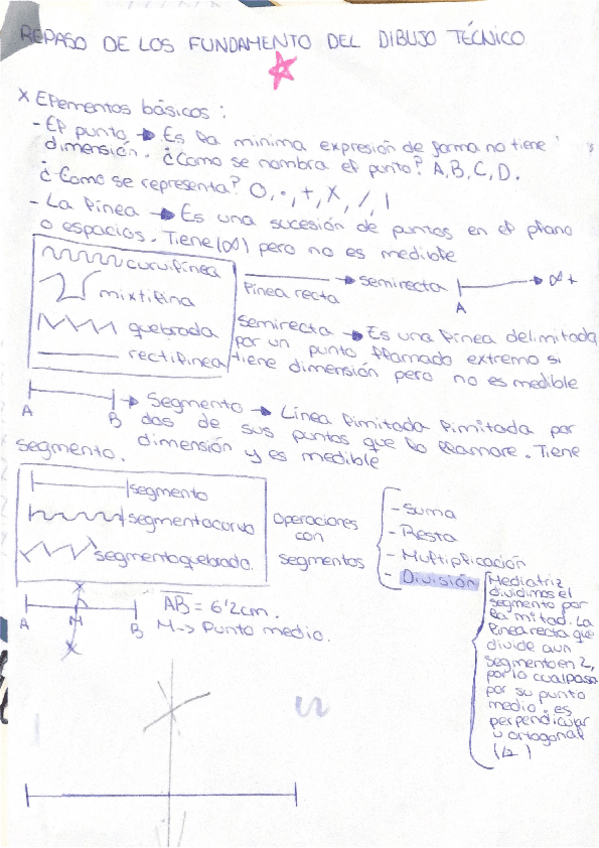 REPASO DE LOS FUNDAMENTO DEL DIBUJO TÉCNICO
x Elementos básicos:
- El punto → Es la minima expresión de forma no tiene
dimensión. ¿Como se nombra el punto? A, B, C, D.
¿Como se representa? O, •, +, X, /, |
- La linea → Es una sucesión de puntos en el plano
o espacios. Tiene (∞) pero no es medible
curvilínea
mixtilina
quebrada
rectilinea
linea recta
→ semirecta
A
∞ +
semirecta → Es una linea delimitada
por un punto llamado extremo si
tiene dimensión pero no es medible
A B → Segmento → Línea limitada limitada por
dos de sus puntos que lo llamare. Tiene
segmento. dimensión y es medible
segmento
segmentocurvo
segmentoquebrado.
Operaciones
con
segmentos
- Suma
- Resta
- Multiplicación
- División
Mediatriz
dividimos el
segmento por
la mitad. La
linea recta que
divide a un
segmento en 2,
por lo cual pasa
por su punto
medio. es
perpendicular
u ortogonal
A M B
AB = 6'2cm.
M → Punto medio.